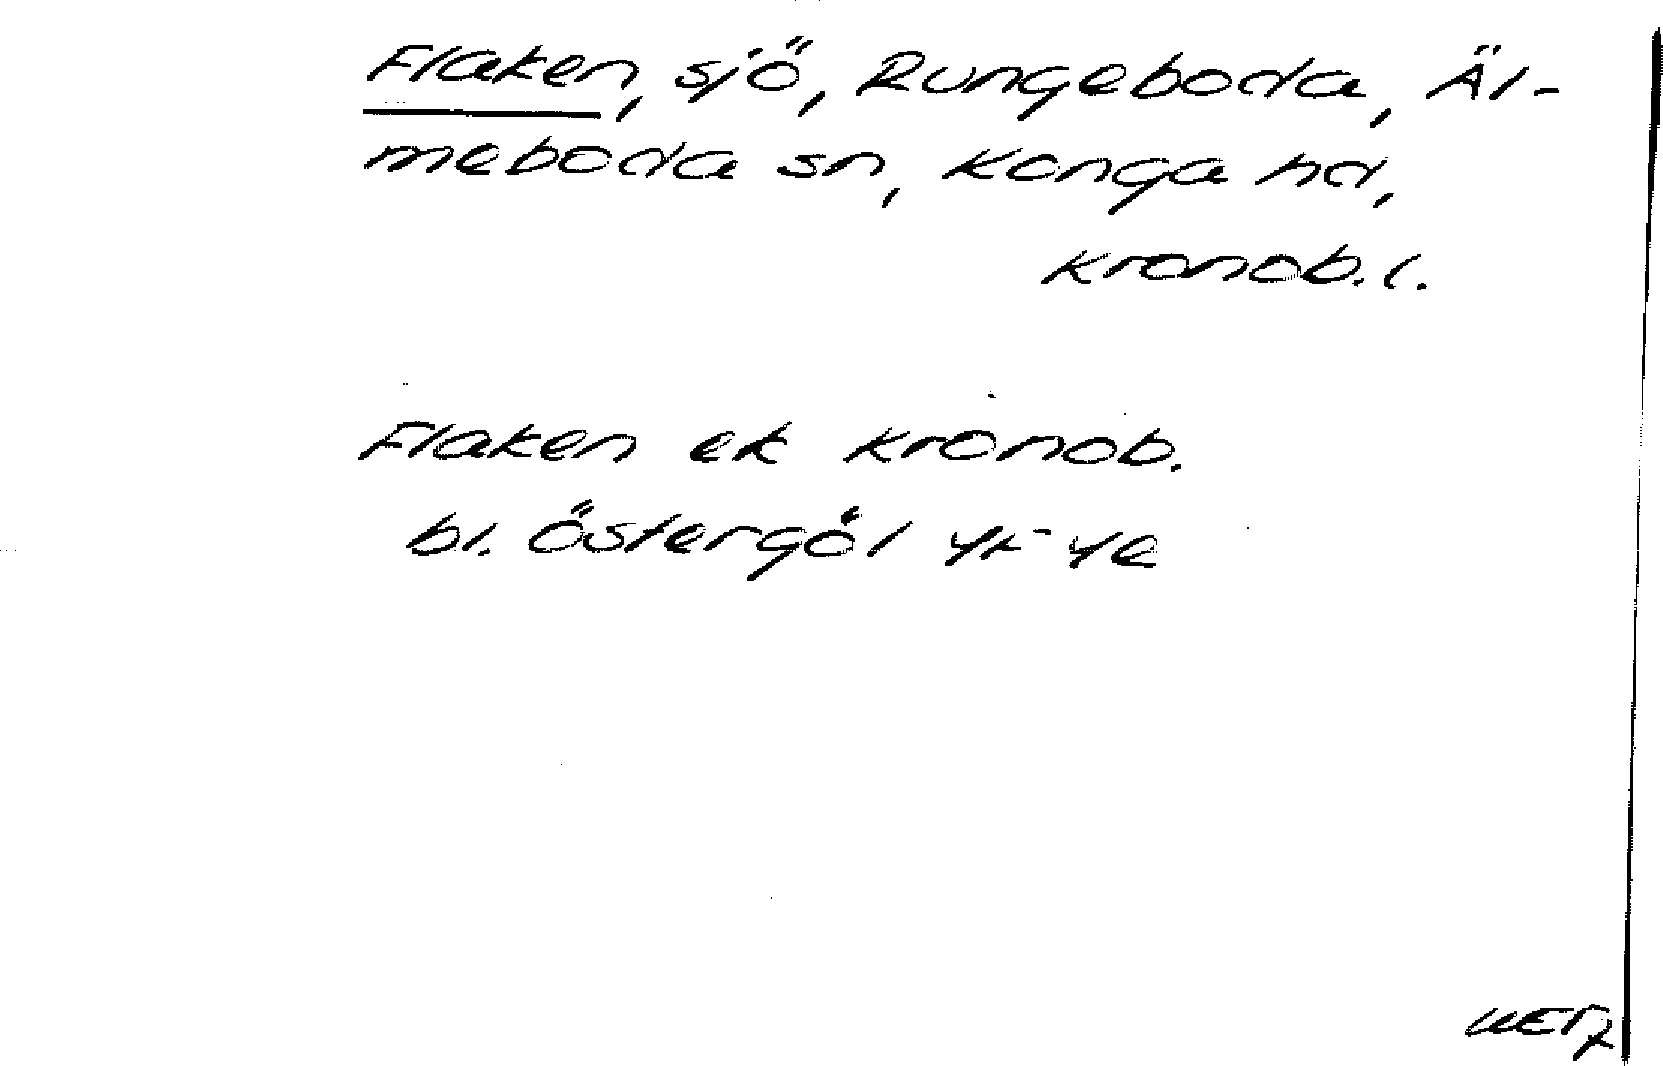 Flaken, sjö, Rungeboda, Äl-
meboda sn, Konga hd,
Kronob. l.
Flaken ek Kronob.
bl. Östergöl 4F 4e